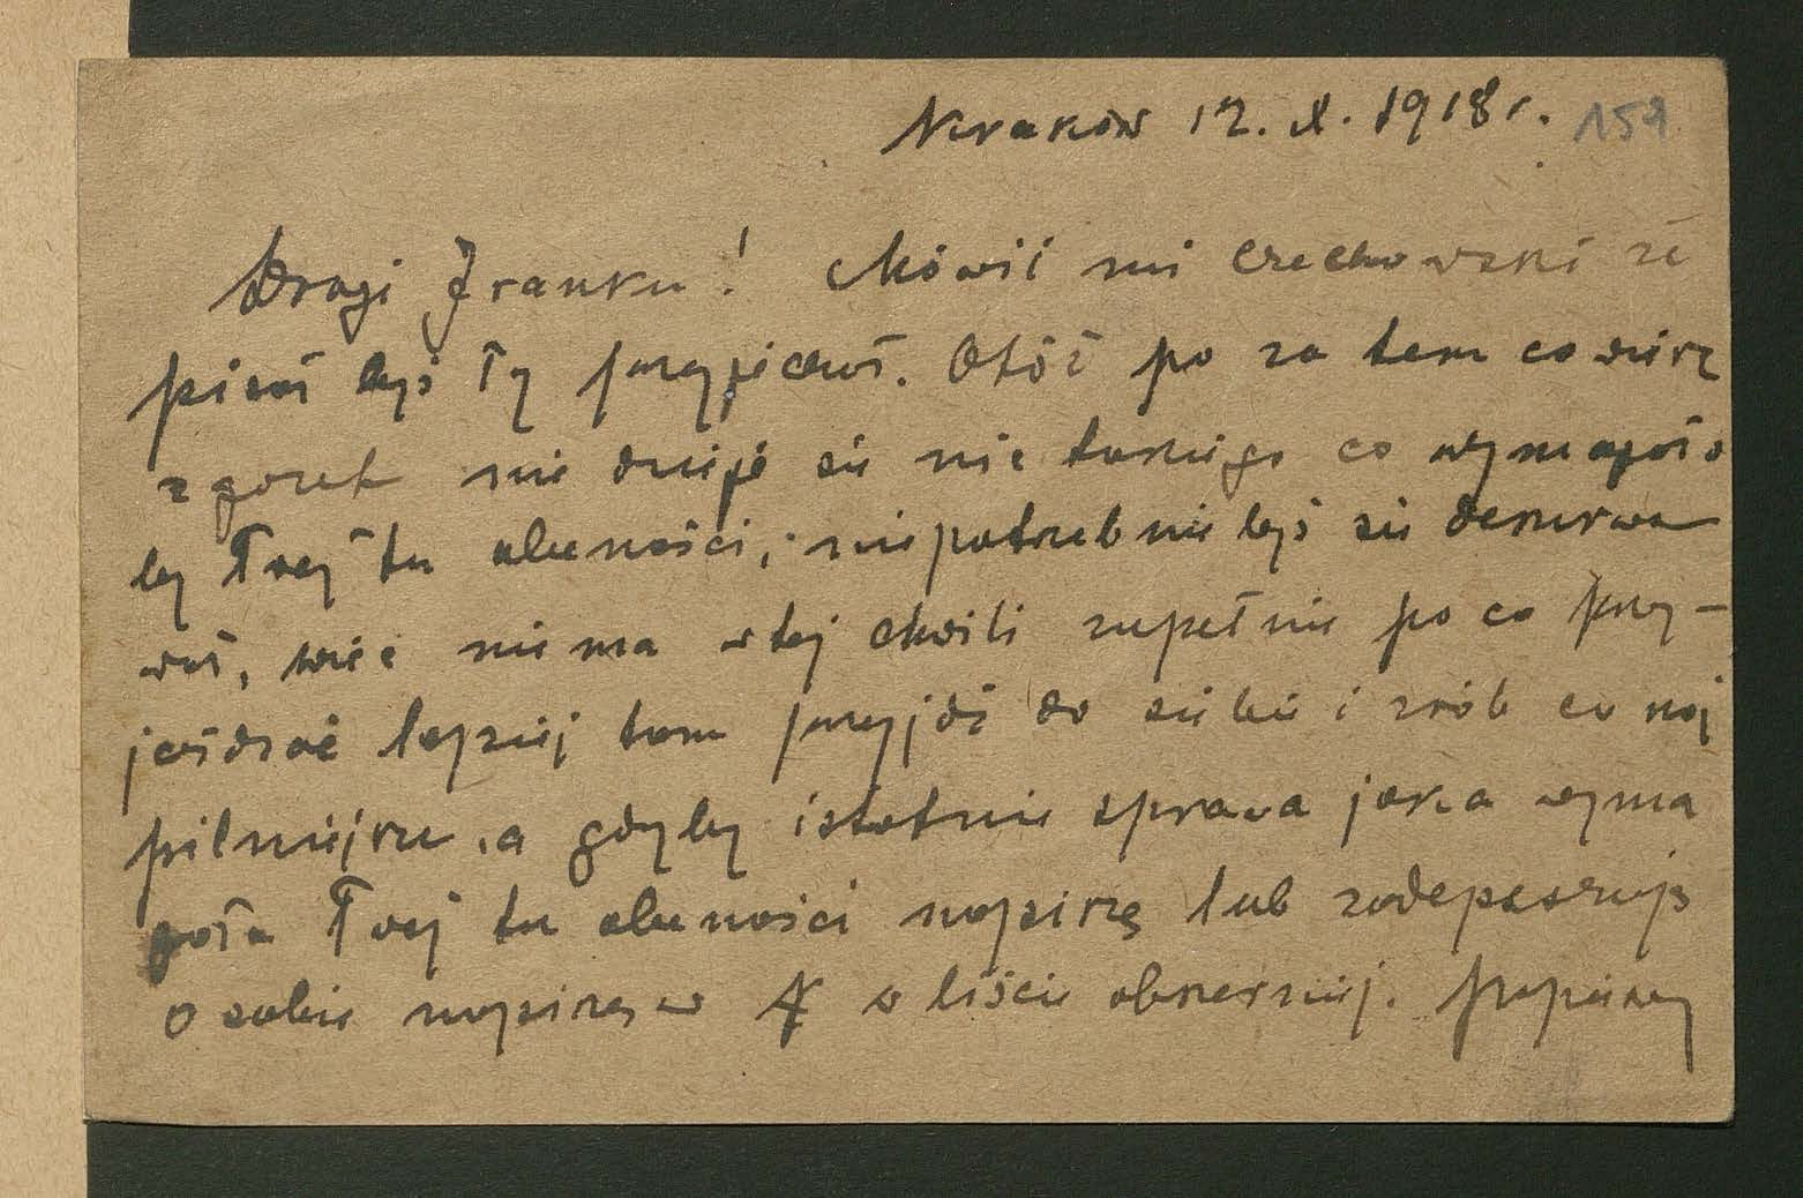 Kraków 12. X. 1918 r. 159
Drogi Franku! Mówił mi Czechowski że
pisał byś Ty przyjechał. Otóż po za tem co wiesz
zgoreh nie dzieje się nic takiego co wymagało
by Twej tu obecności; niepotrzebnie byś się denerwo
wał, więc niema w tej chwili zupełnie po co przy-
jeżdżać lepiej tam przyjdź do siebie i zrób co naj
pilniejsze, a gdyby istotnie sprawa jaka wyma
gała Twej tu obecności napiszę lub zadepeszuję
O sobie napiszę w w liście obszerniej.